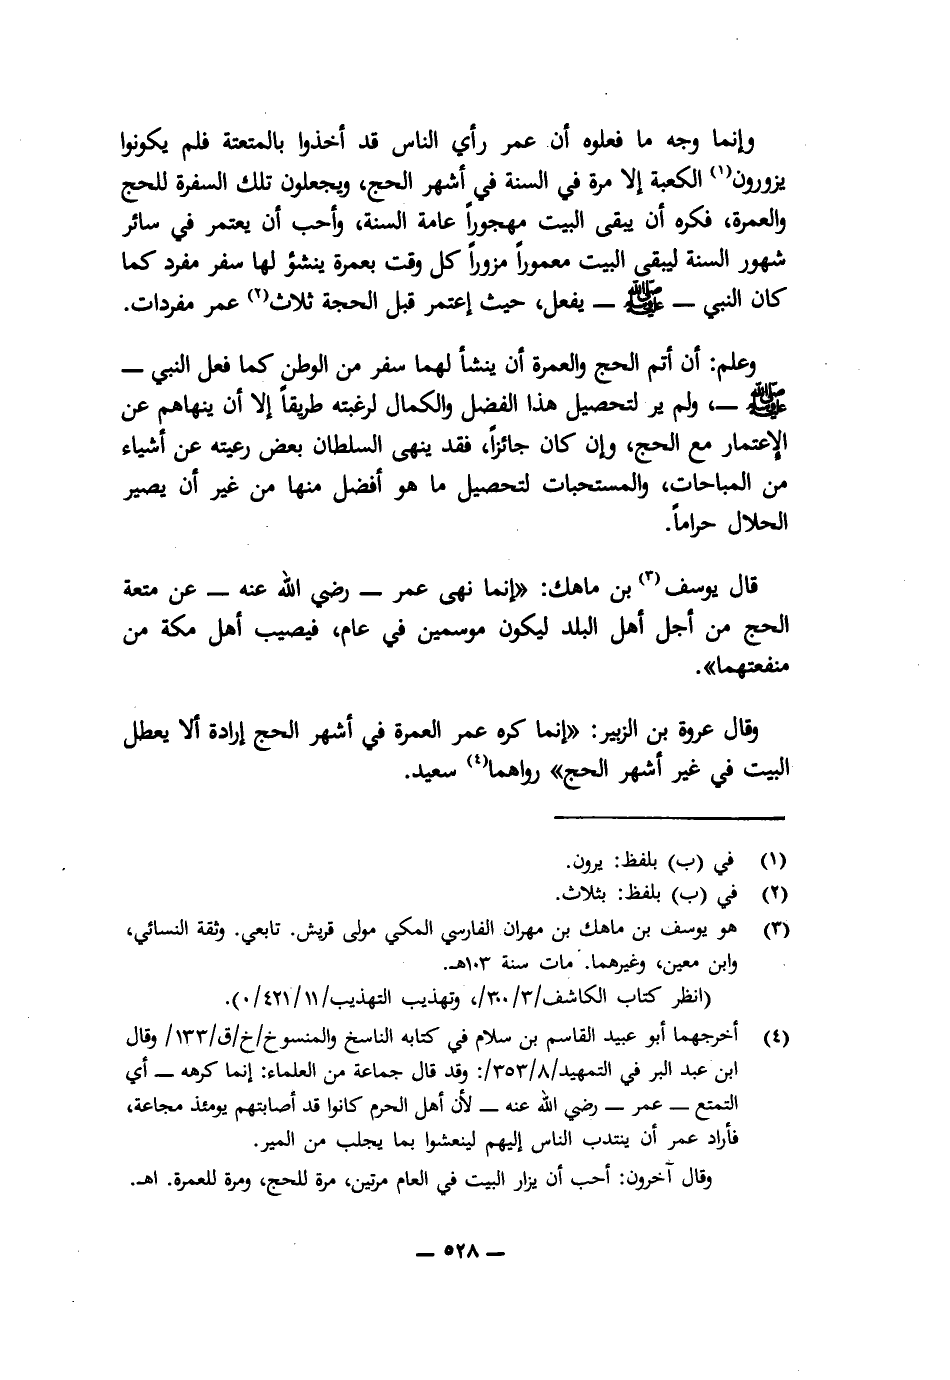 وإنما وجه ما فعلوه أن عمر رأي الناس قد أخذوا بالمتعتة فلم يكونوا
يزورون(١) الكعبة إلا مرة في السنة في أشهر الحج، ويجعلون تلك السفرة للحج
والعمرة، فكره أن يبقى البيت مهجوراً عامة السنة، وأحب أن يعتمر في سائر
شهور السنة ليبقى البيت معموراً مزوراً كل وقت بعمرة ينشؤ لها سفر مفرد كما
كان النبي — ﷺ — يفعل، حيث إعتمر قبل الحجة ثلاث(٢) عمر مفردات.
وعلم: أن أتم الحج والعمرة أن ينشأ لهما سفر من الوطن كما فعل النبي —
ﷺ —، ولم ير لتحصيل هذا الفضل والكمال لرغبته طريقاً إلا أن ينهاهم عن
الإعتمار مع الحج، وإن كان جائزاً، فقد ينهى السلطان بعض رعيته عن أشياء
من المباحات، والمستحبات لتحصيل ما هو أفضل منها من غير أن يصير
الحلال حراماً.
قال يوسف(٣) بن ماهك: «إنما نهى عمر — رضي الله عنه — عن متعة
الحج من أجل أهل البلد ليكون موسمين في عام، فيصيب أهل مكة من
منفعتهما».
وقال عروة بن الزبير: «إنما كره عمر العمرة في أشهر الحج إرادة ألا يعطل
البيت في غير أشهر الحج» رواهما(٤) سعيد.
(١) في (ب) بلفظ: يرون.
(٢) في (ب) بلفظ: بثلاث.
(٣) هو يوسف بن ماهك بن مهران الفارسي المكي مولى قريش. تابعي. وثقة النسائي،
وابن معين، وغيرهما. مات سنة ١٠٣هـ.
(انظر كتاب الكاشف/٣٠٠/٣/، وتهذيب التهذيب/٤٢١/١١/٠).
(٤) أخرجهما أبو عبيد القاسم بن سلام في كتابه الناسخ والمنسوخ/خ/ق/١٣٣/ وقال
ابن عبد البر في التمهيد/٣٥٣/٨/: وقد قال جماعة من العلماء: إنما كرهه — أي
التمتع — عمر — رضي الله عنه — لأن أهل الحرم كانوا قد أصابتهم يومئذ مجاعة،
فأراد عمر أن ينتدب الناس إليهم لينعشوا بما يجلب من المير.
وقال آخرون: أحب أن يزار البيت في العام مرتين، مرة للحج، ومرة للعمرة. اهـ.
— ٥٢٨ —